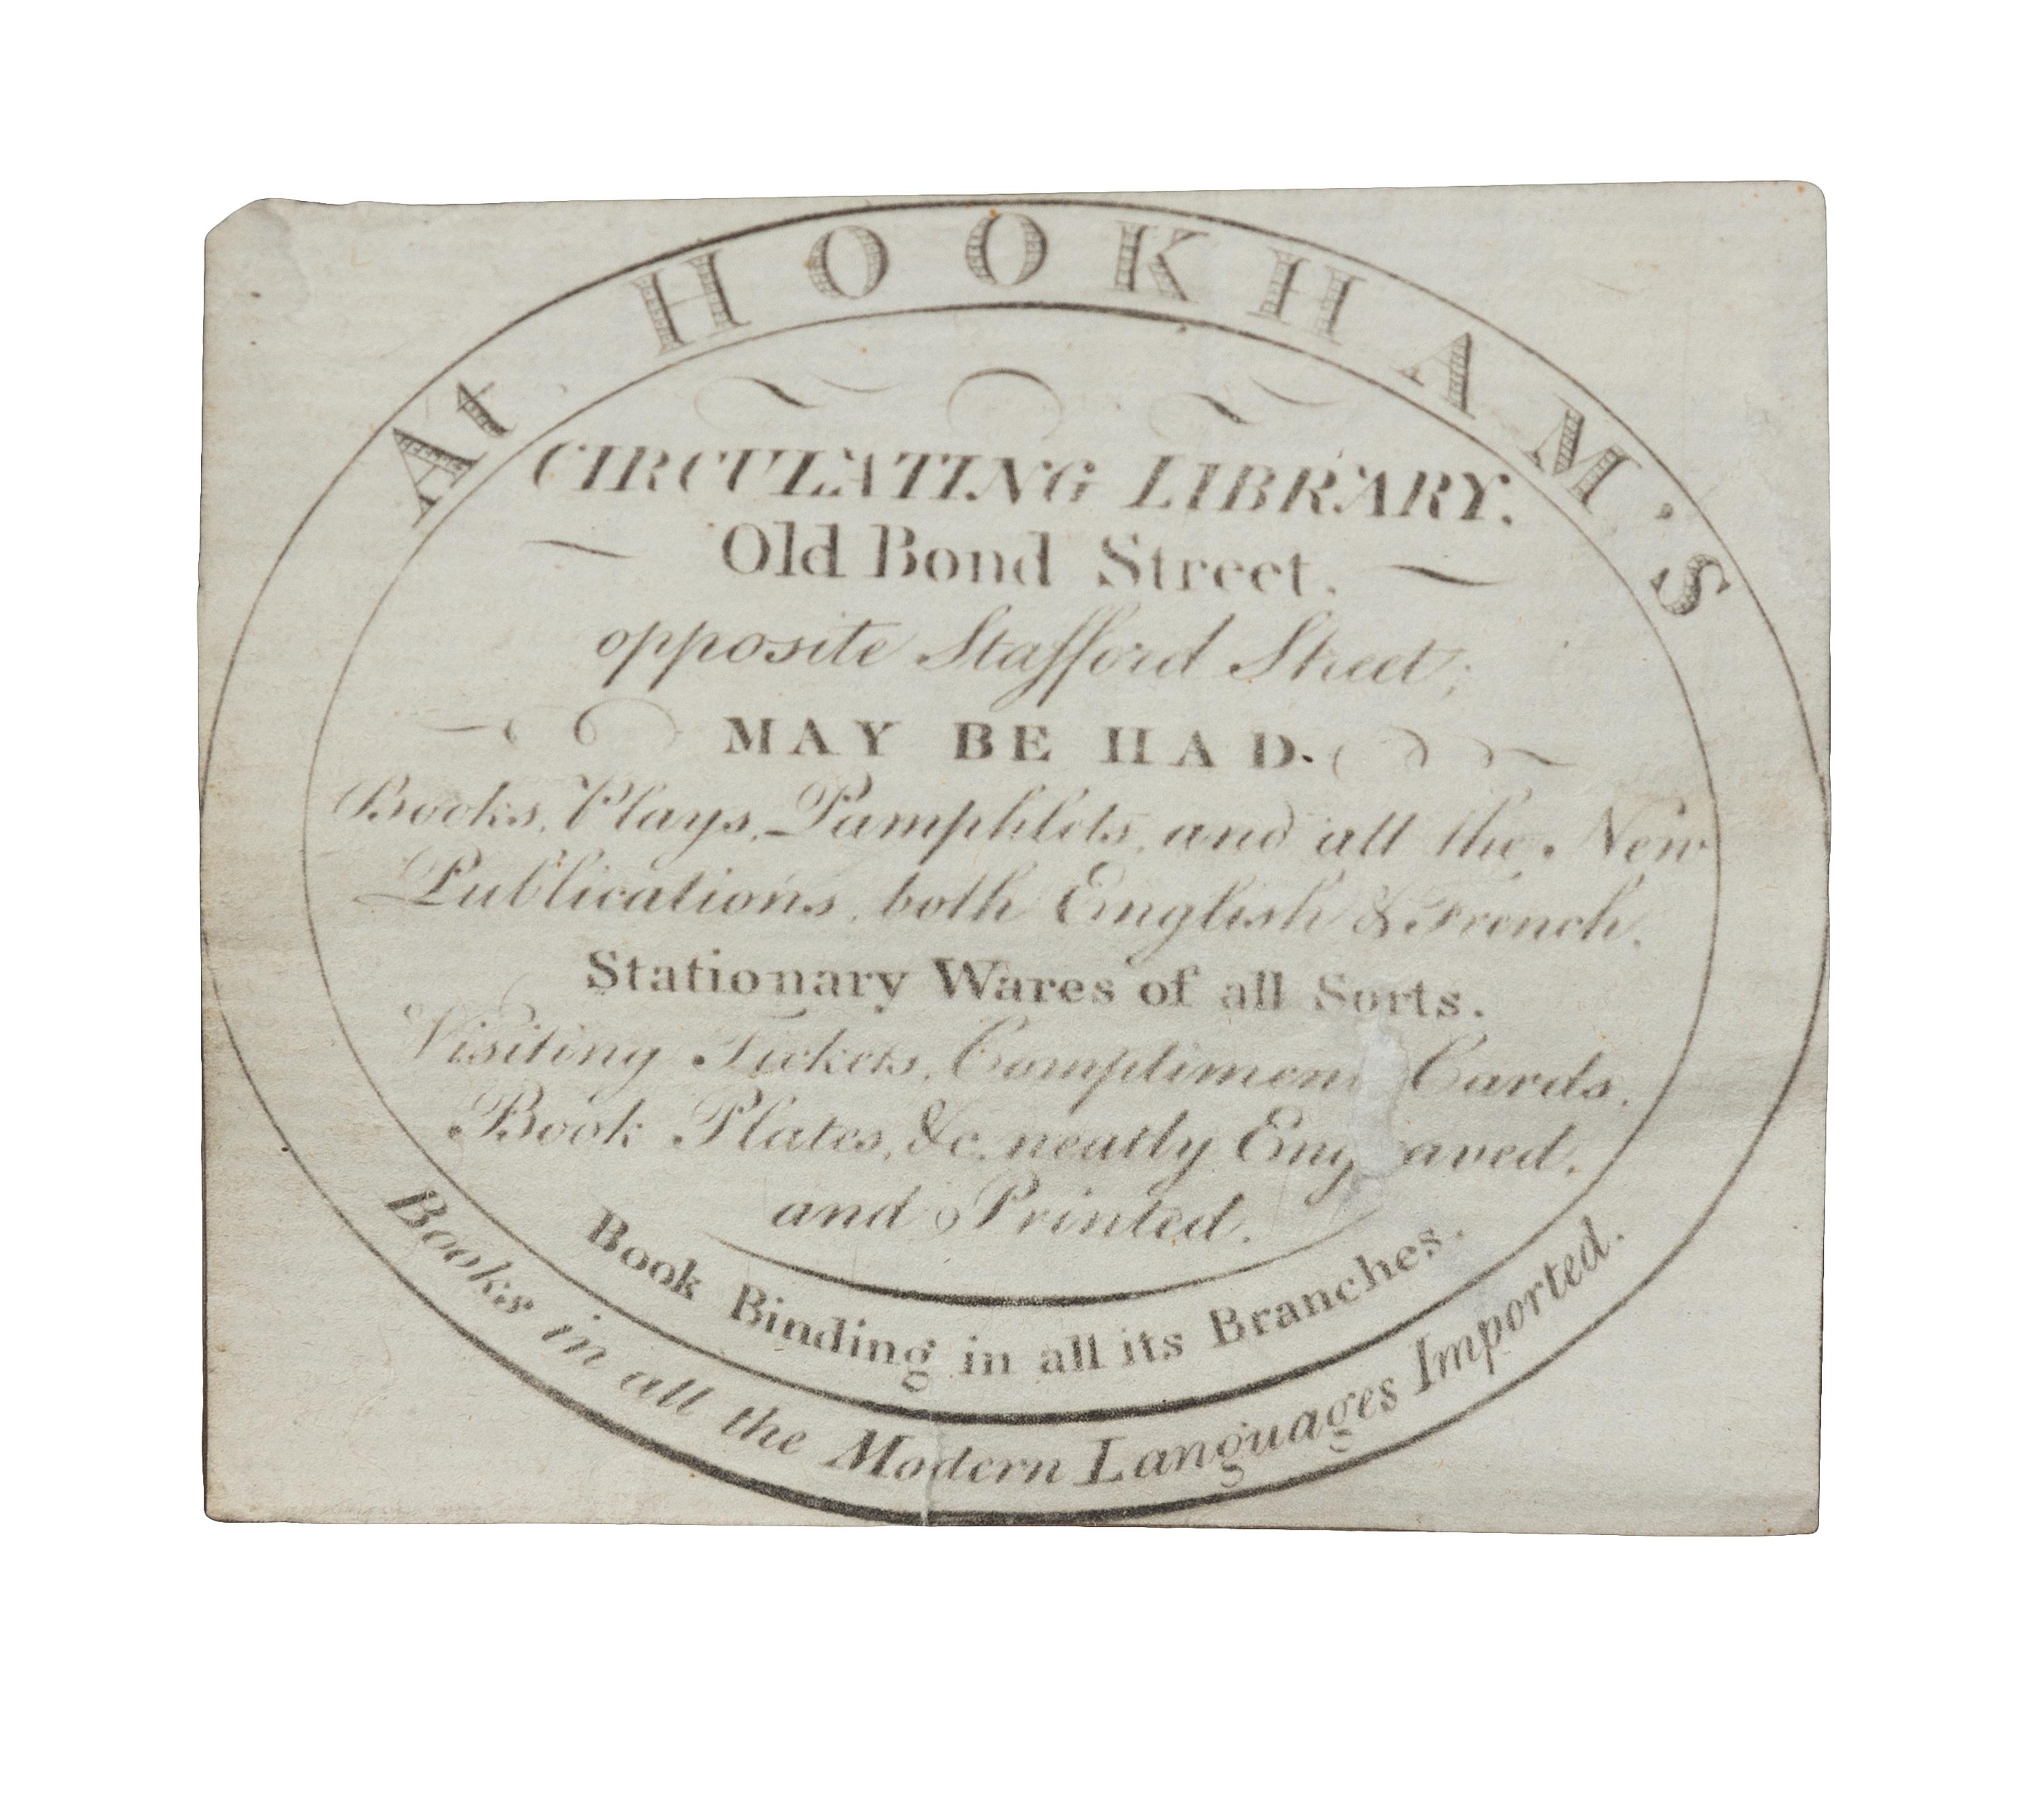 At HOOKHAM'S
CIRCULATING LIBRARY.
Old Bond Street.
opposite Stafford Street;
MAY BE HAD.
Books, Plays, Pamphlets, and all the New
Publications, both English & French.
Stationary Wares of all Sorts.
Visiting Tickets, Complimen Cards.
Book Plates, &c. neatly Eng aved.
and Printed.
Book Binding in all its Branches.
Books in all the Modern Languages Imported.